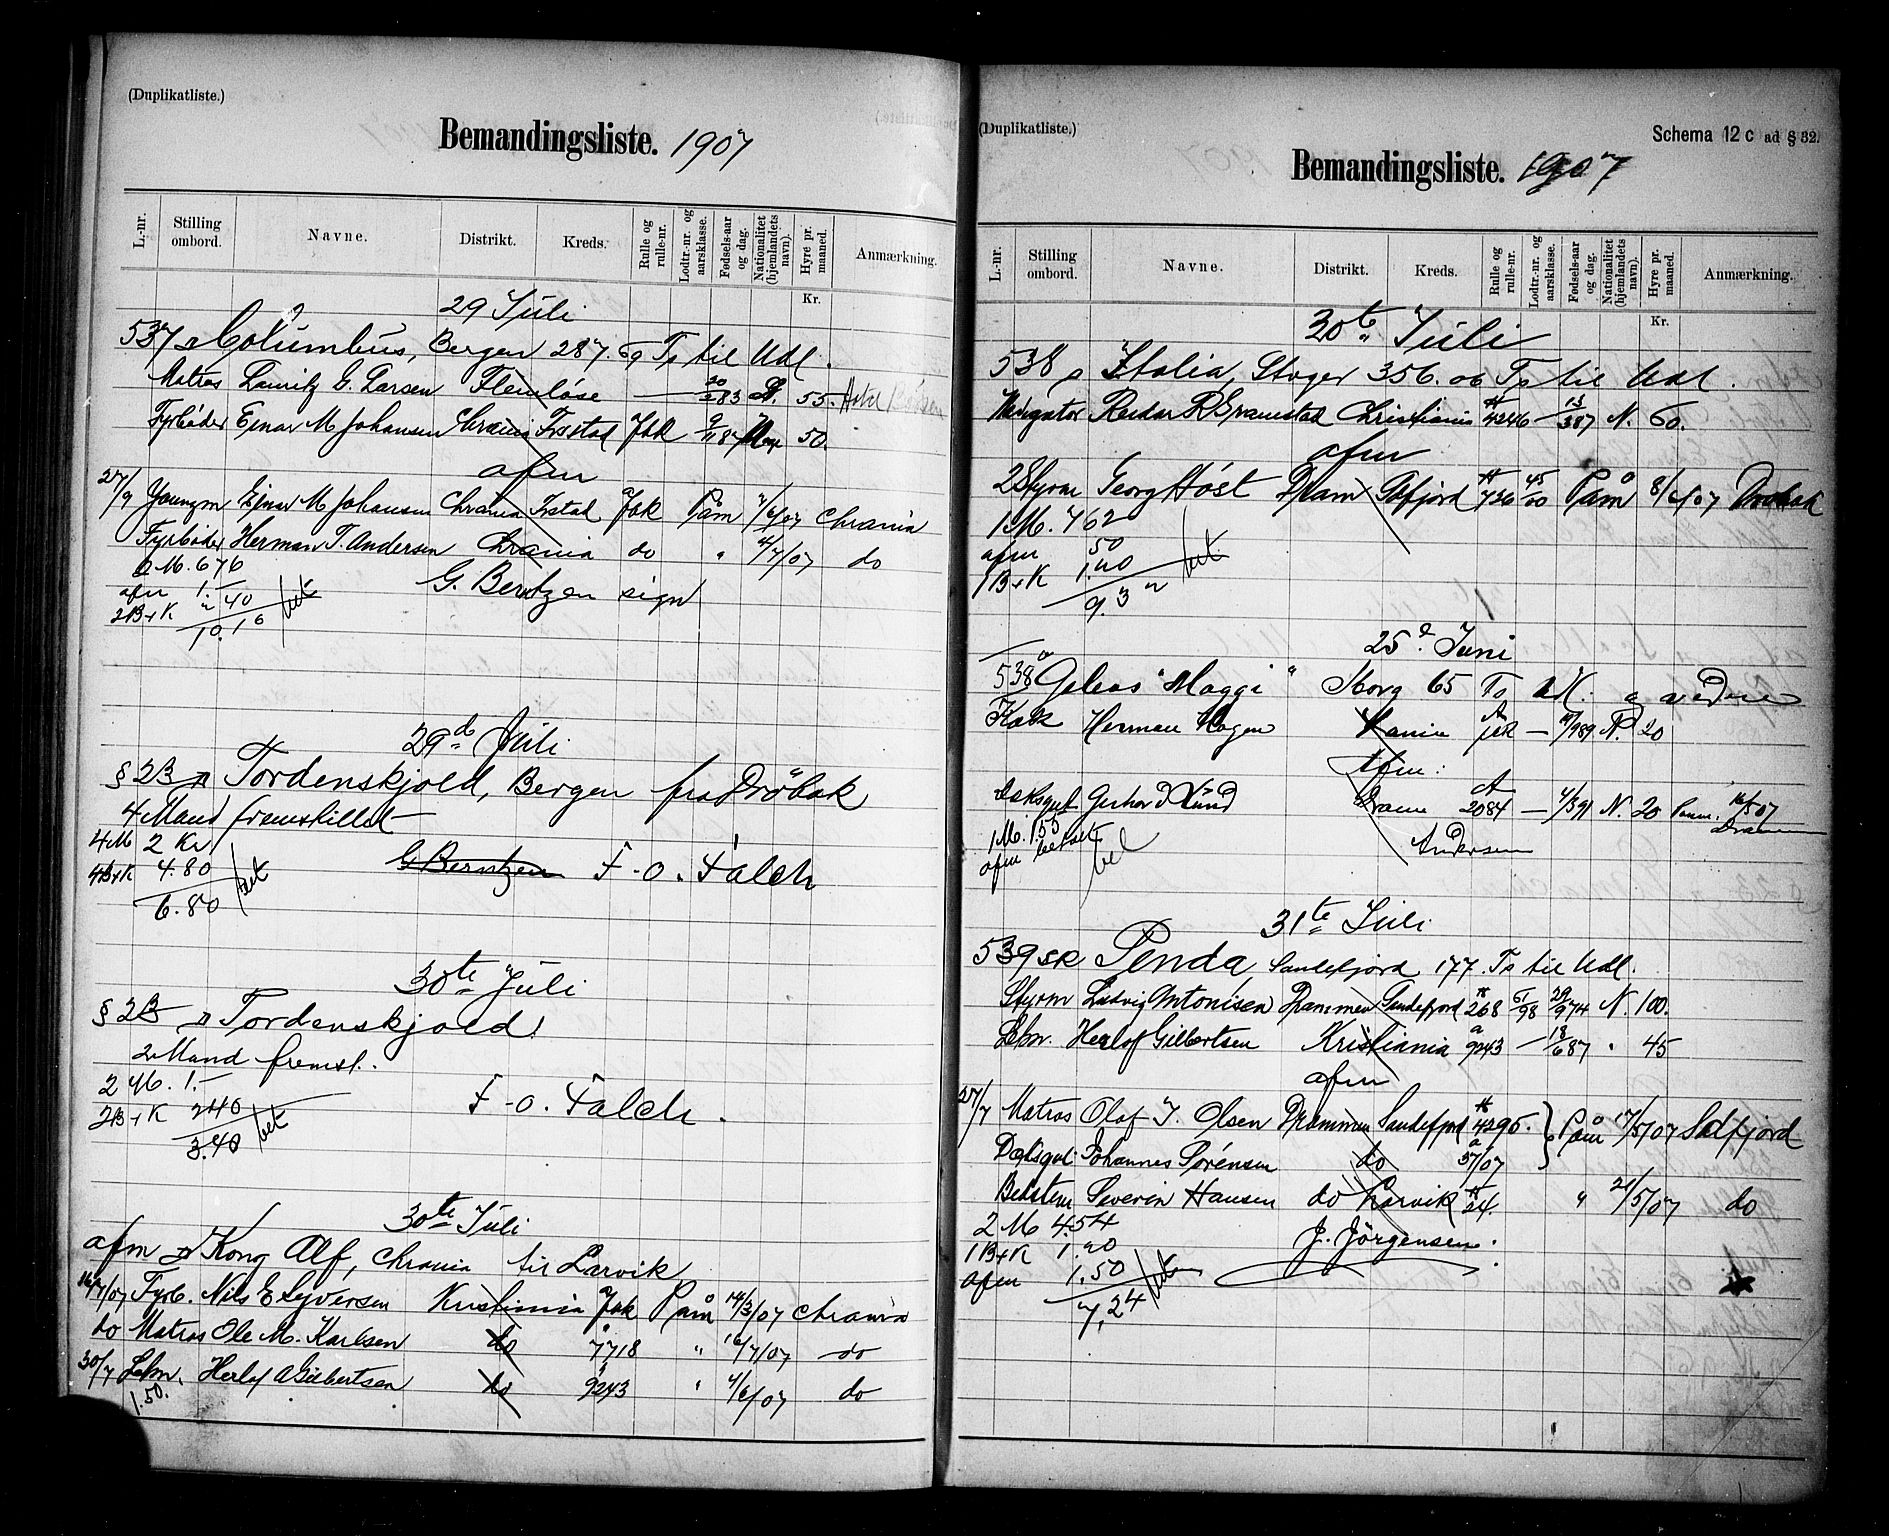 (Duplikatliste.)
Bemandingsliste. 1907
L.-nr. Stilling ombord. Navne. Distrikt. Kreds. Rulle og rulle-nr. Lodtr.-nr. og aarsklasse. Fødsels-aar og dag. Nationalitet (hjemlandets navn). Hyre pr. maaned. Anmærkning.
Kr.
29 Juli
537 Columbus, Bergen 287.69 Ts til Udl.
Matros Lauritz G. Larsen Flemløse — 83 55.
Fyrbøder Ejnar M Johansen Chrania Frstad Jok 50.
afm
27/7 Youngm Ejnar M Johansen Chrania Frstad Jok Påm 7/6/07 Chrania
Fyrbøder Herman T. Andersen Chrania do " 4/7/07 do
2 M. 676
afm 1.—
2B+K 2 40
10.16 bet
G. Berntzen sign
29de Juli
§ 2B Tordenskjold, Bergen fra Drøbak
4 Mand fremstillet
4 M 2 Kr
4B+K 4.80
6.80 bet
G Berntzen F-O. Falch
30te Juli
§ 2B Tordenskjold
2 Mand fremst.
2 M. 1.—
2B+K 2 40
3.40 bet
F-O. Falch.
30te Juli
afm Kong Alf, Chrania til Larvik
16/7/07 Fyrb. Nils E Syversen Kristiania Jok Påm 14/3/07 Chrania
do Matros Ole M. Karlsen do 7718 " 16/7/07 do
30/7 Lekm. Herlof A Gilbertsen do 9243 " 4/6/07 do
1.50.
(Duplikatliste.)
Schema 12 c ad § 32.
Bemandingsliste. 1907
L.-nr. Stilling ombord. Navne. Distrikt. Kreds. Rulle og rulle-nr. Lodtr.-nr. og aarsklasse. Fødsels-aar og dag. Nationalitet (hjemlandets navn). Hyre pr. maaned. Anmærkning.
Kr.
30te Juli
538 Italia, Stvger 356.06 Ts til Udl.
Navigatør Reidar R Gramstad Christiania 4246 — 13/387 N. 60.
afm
2 Styrm Georg Høst Dram Gfjord 736 45/00 Påm 8/6/07 Drøbak
1 M. 762
afm 50
1B+K 1.20
9.32 bet
25de Juni
538a Galeas "Maggi" Skorg 65 Ts
Kok Herman Hagen Jok — 989 N. 20
Afm:
Dæksgut Gerhard Lund Dram 2084 — 4/391 N. 20 Paam. 07 Dram
1 M. 155
afm betalt
bet
Andersen
31te Juli
539 SK Penda, Sandefjord 177 Ts til Udl.
Styrm Ludvig Antonisen Drammen Sandefjord 268 51/98 29/974 N. 100.
Lekm. Herlof Gilbertsen Kristiania 9243 — 18/687 " 45
afm
27/7 Matros Olaf J. Olsen Drammen Sandefjord 4295. Påm 17/5/07 Sdfjord
Dæksgut Johannes Sørensen do 57/07
Bekstem Severin Hansen do Larvik 24. " 21/5/07 do
2 M 4.54
1B+K 1.20
afm 1.50
7,24 bet
J. Jörgensen.